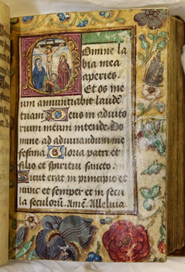 Domine la
bia mea
aperies.
Et os me
um annuntiabit laudē
tuam. Deus in adiuto
rium meum intende. Do
mine ad adiuuandum me
festina. Gloria patri et
filio et spiritui sancto.
Sicut erat in principio et
nunc et semper et in secu
la seculorū. Amē. Alleluia